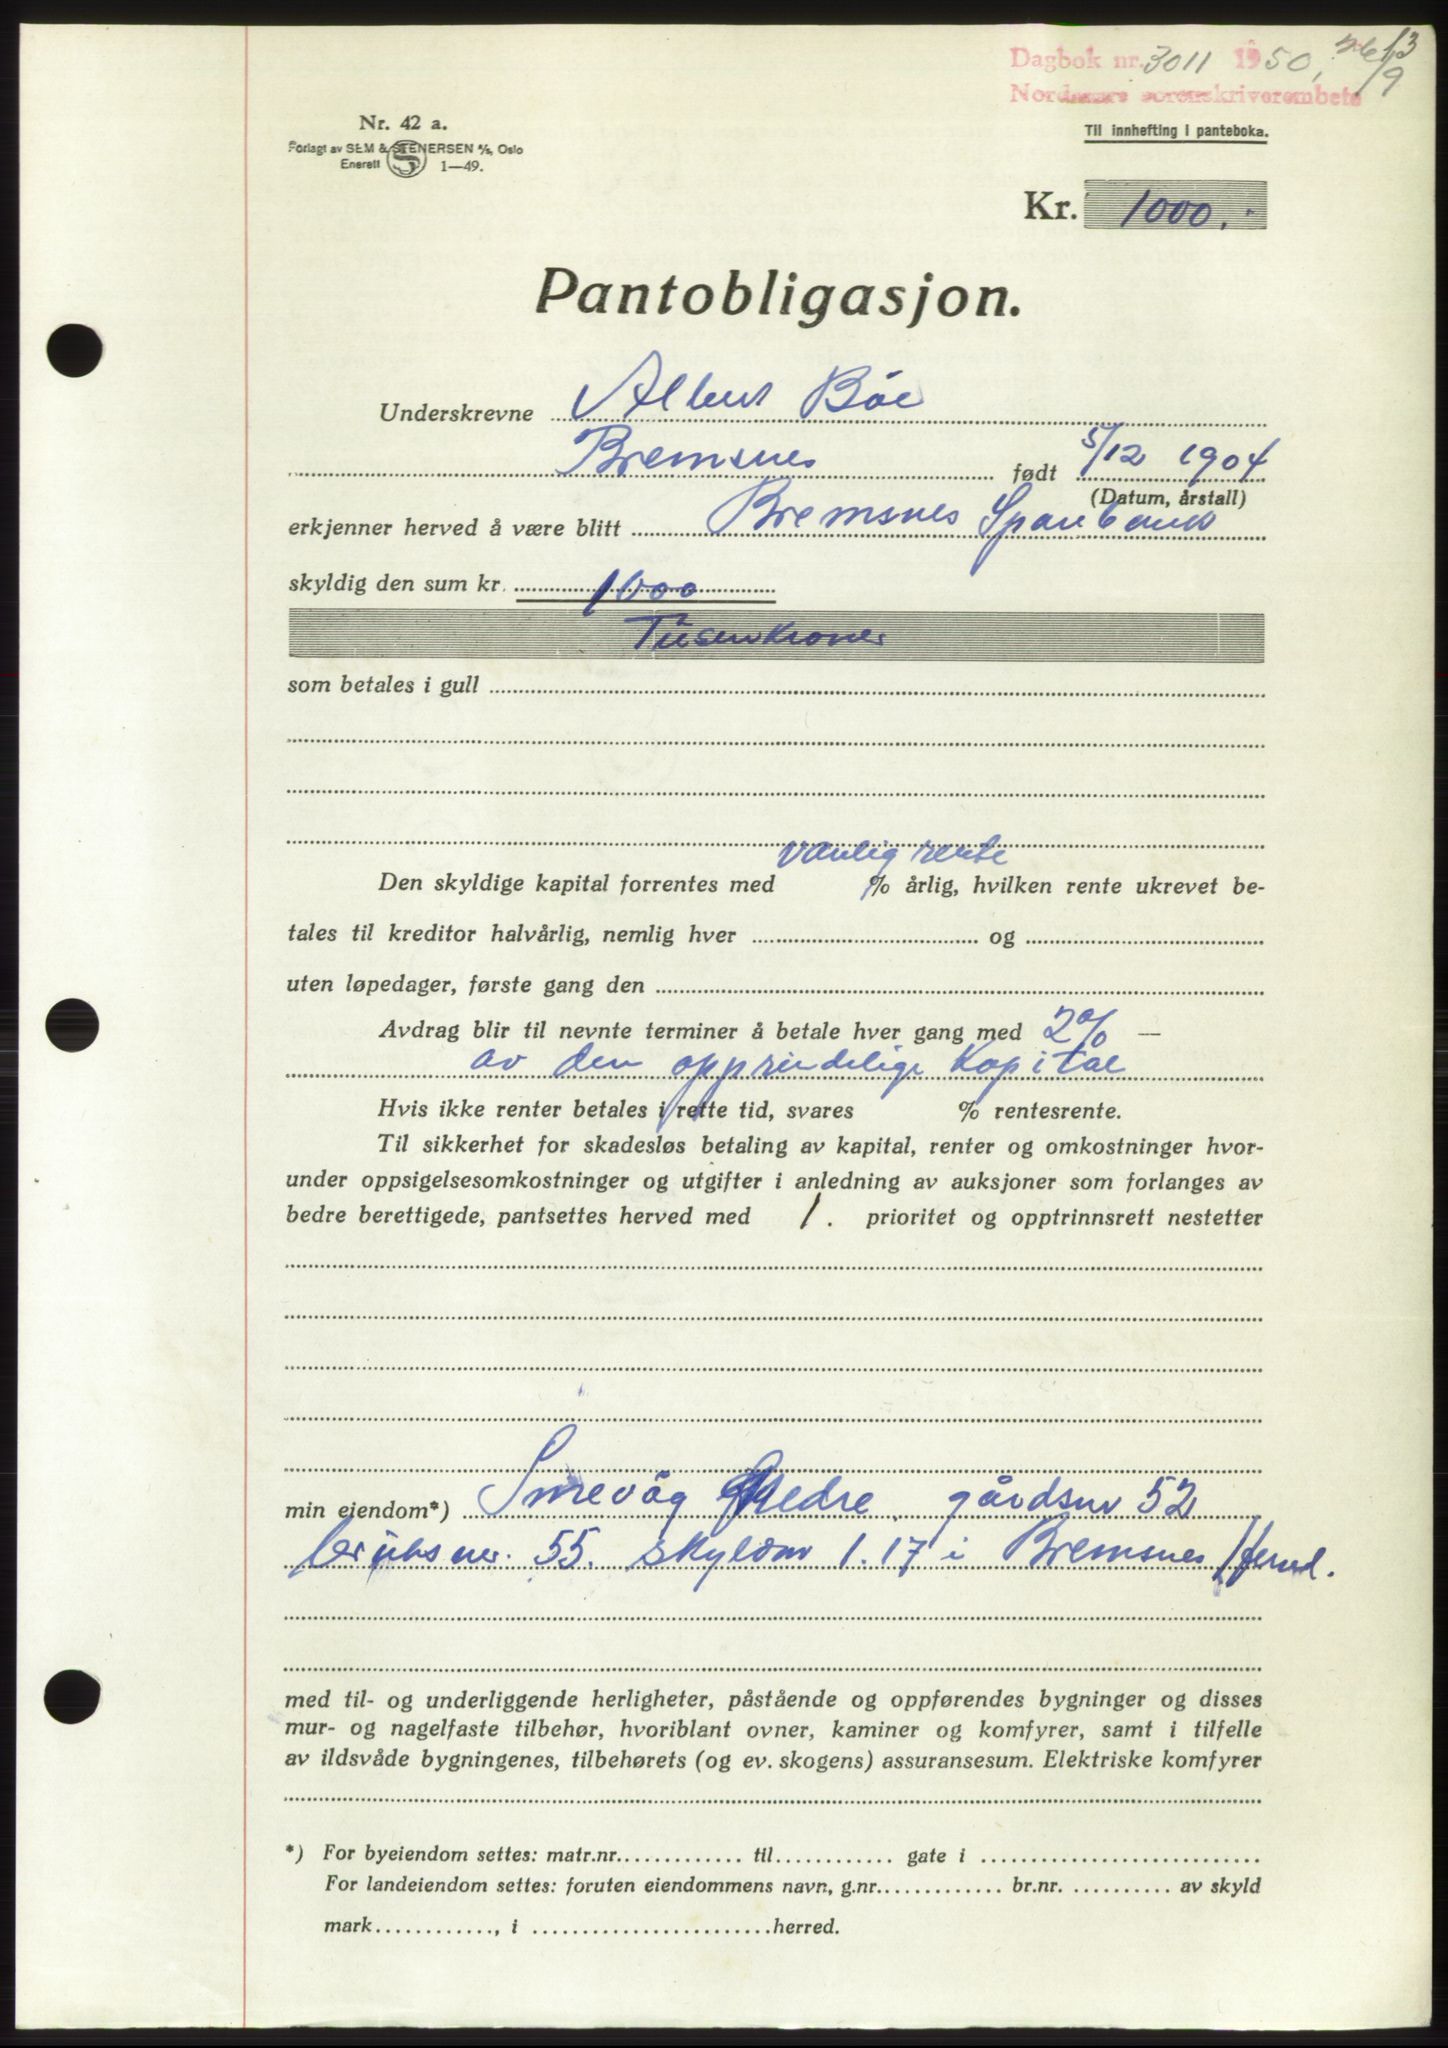 Dagbok nr. 3011 1950, 26/9
Nordmøre sorenskriverembete
13
Nr. 42 a.
Forlagt av SEM & STENERSEN A/S, Oslo
Enerett 1—49.
Til innhefting i panteboka.
Kr. 1000.-
Pantobligasjon.
Underskrevne Albert Böe
Bremsnes født 5/12 1904
(Datum, årstall)
erkjenner herved å være blitt Bremsnes Sparebank
skyldig den sum kr. 1000
Tusenkroner
som betales i gull
vanlig rente
Den skyldige kapital forrentes med % årlig, hvilken rente ukrevet be-
tales til kreditor halvårlig, nemlig hver og
uten løpedager, første gang den
Avdrag blir til nevnte terminer å betale hver gang med 2% —
av den opprindelige kapital
Hvis ikke renter betales i rette tid, svares % rentesrente.
Til sikkerhet for skadesløs betaling av kapital, renter og omkostninger hvor-
under oppsigelsesomkostninger og utgifter i anledning av auksjoner som forlanges av
bedre berettigede, pantsettes herved med 1. prioritet og opptrinnsrett nestetter
min eiendom*) Smevåg Nedre, gårdsnr 52
bruksnr. 55. skyldmr 1.17 i Bremsnes Herred.
med til- og underliggende herligheter, påstående og oppførendes bygninger og disses
mur- og nagelfaste tilbehør, hvoriblant ovner, kaminer og komfyrer, samt i tilfelle
av ildsvåde bygningenes, tilbehørets (og ev. skogens) assuransesum. Elektriske komfyrer
*) For byeiendom settes: matr.nr. til gate i
For landeiendom settes: foruten eiendommens navn, g.nr. br.nr. av skyld
mark , i herred.